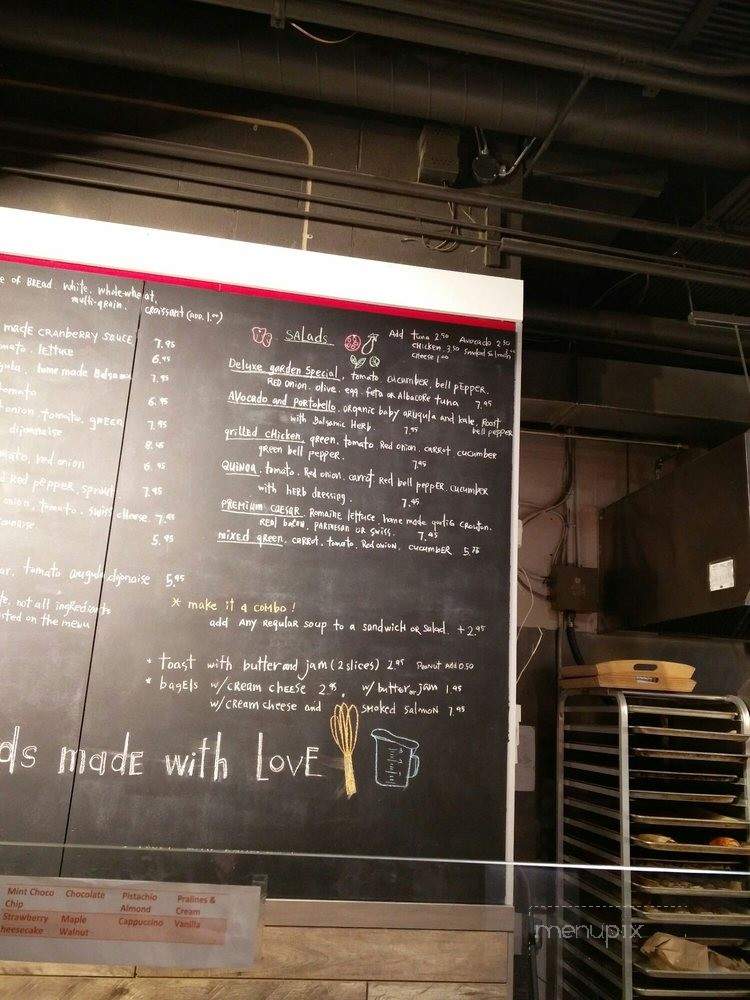 e of BREAD. White. whole-wheat.
multi-grain.
croissant (add. 1.00)
made cranberry sauce 7.95
omato. lettuce 6.95
home made Balsamic 7.95
tomato 6.95
onion tomato, green 7.95
dijonaise 8.45
mato, red onion 6.95
Red pepper, sprout 7.95
onion, tomato, swiss cheese 7.45
5.95
ar, tomato arugula dijonaise 5.45
te, not all ingredients
sted on the menu
Salads
Add tuna 2.50 Avocado 2.50
chicken 3.50 smoked salmon
cheese 1.00
Deluxe garden Special, tomato, cucumber, bell pepper,
Red onion. olive. egg. feta or Albacore tuna 7.95
Avocado and Portobello, organic baby arugula and kale, Roast
bell pepper
with Balsamic Herb. 7.95
grilled chicken, green, tomato Red onion. carrot cucumber
green bell pepper. 7.45
Quinoa. tomato. Red onion. carrot Red bell pepper. cucumber
with herb dressing. 7.95
Premium caesar. Romaine lettuce, home made garlic crouton.
real bacon, parmesan or swiss. 7.45
mixed green, carrot, tomato, Red onion, cucumber 5.75
* make it a combo!
add any regular soup to a sandwich or salad. +2.95
* toast with butter and jam (2 slices) 2.45 Peanut add 0.50
* bagels w/cream cheese 2.95, w/butter or jam 1.95
w/cream cheese and smoked salmon 7.95
ds made with LovE
Mint Choco Chip Chocolate Pistachio Almond Pralines & Cream
Strawberry heesecake Maple Walnut Cappuccino Vanilla
menupix